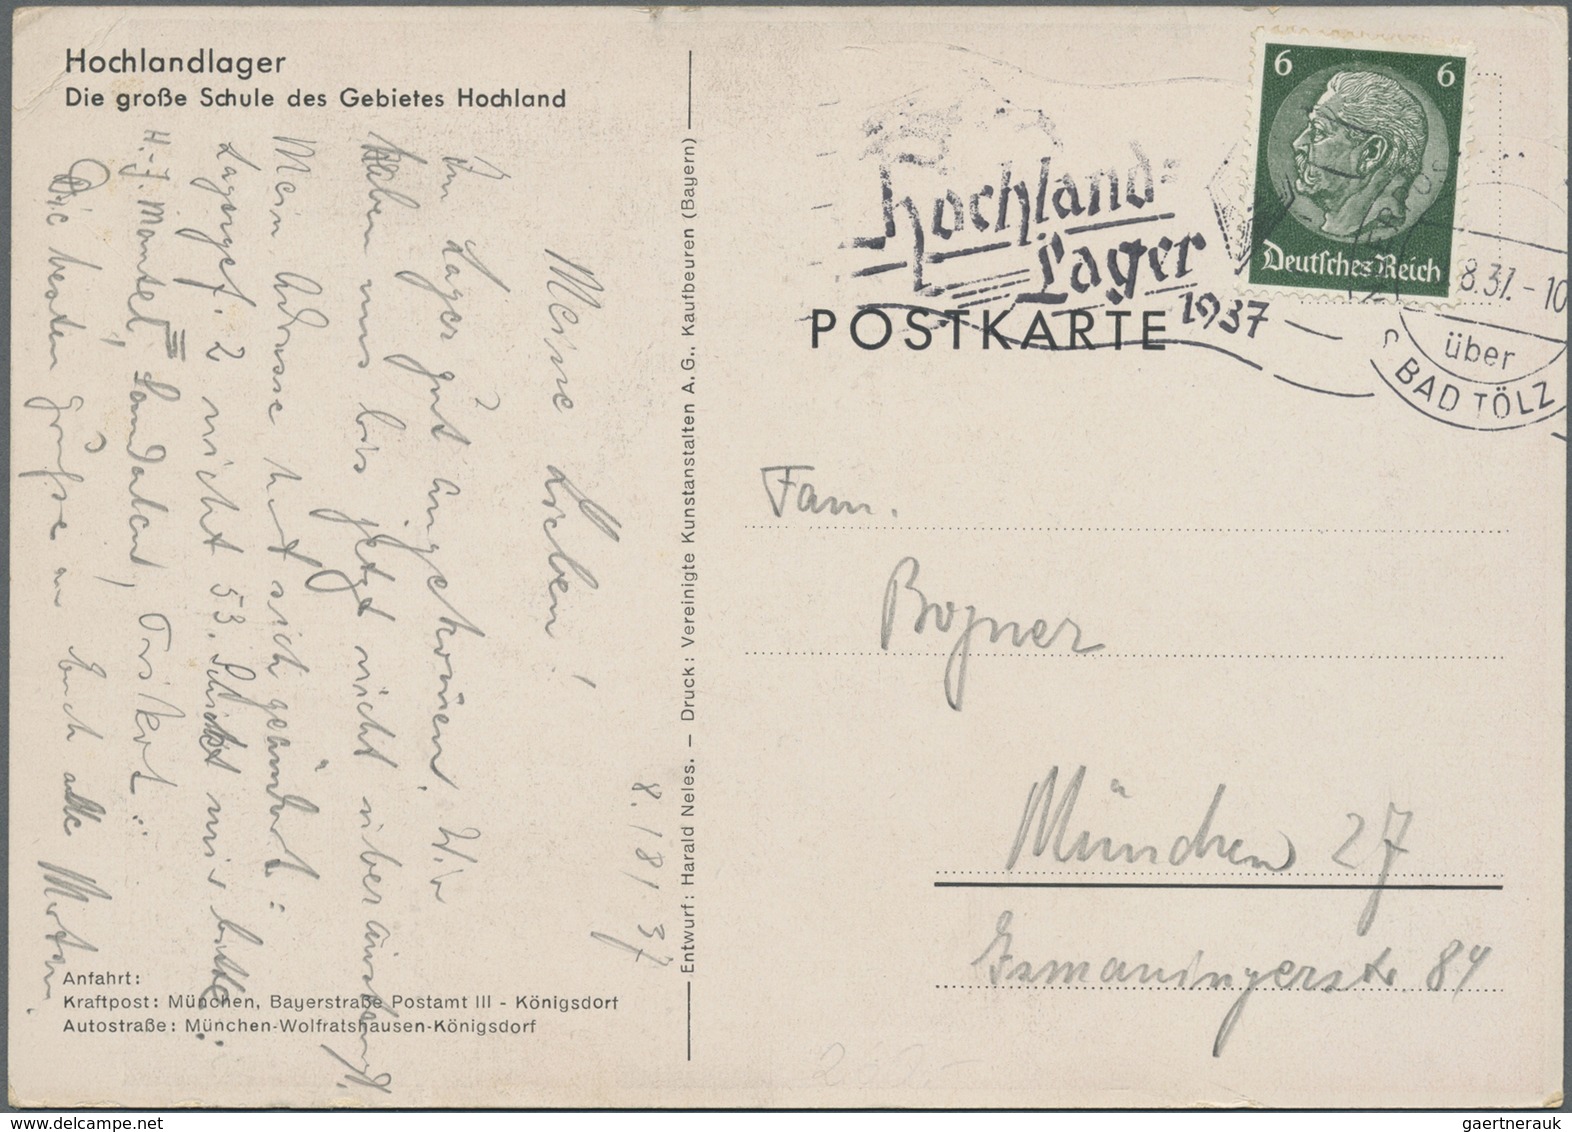 Hochlandlager
Die große Schule des Gebietes Hochland
8./8/.37
Meine Lieben!
Im Lager gut angekom̄en. Wir
haben uns bis jetzt nicht überanstrengt.
Mein Adresse hat sich geändert:
Lagergef. 2 nicht 53. Schickt mir bitte:
H.-J. Mantel, Sandalen, Trikot!
Die besten Grüße an Euch alle
Anfahrt:
Kraftpost: München, Bayerstraße Postamt III - Königsdorf
Autostraße: München-Wolfratshausen-Königsdorf
Entwurf: Harald Neles. — Druck: Vereinigte Kunstanstalten A. G., Kaufbeuren (Bayern)
Hochland=
Lager
1937
6 6
Deutsches Reich
8.37.-10
über
BAD TÖLZ
POSTKARTE
Fam.
Bogner
München 27
Ismaningerstr. 84
gaertnerauk@delcampe.net